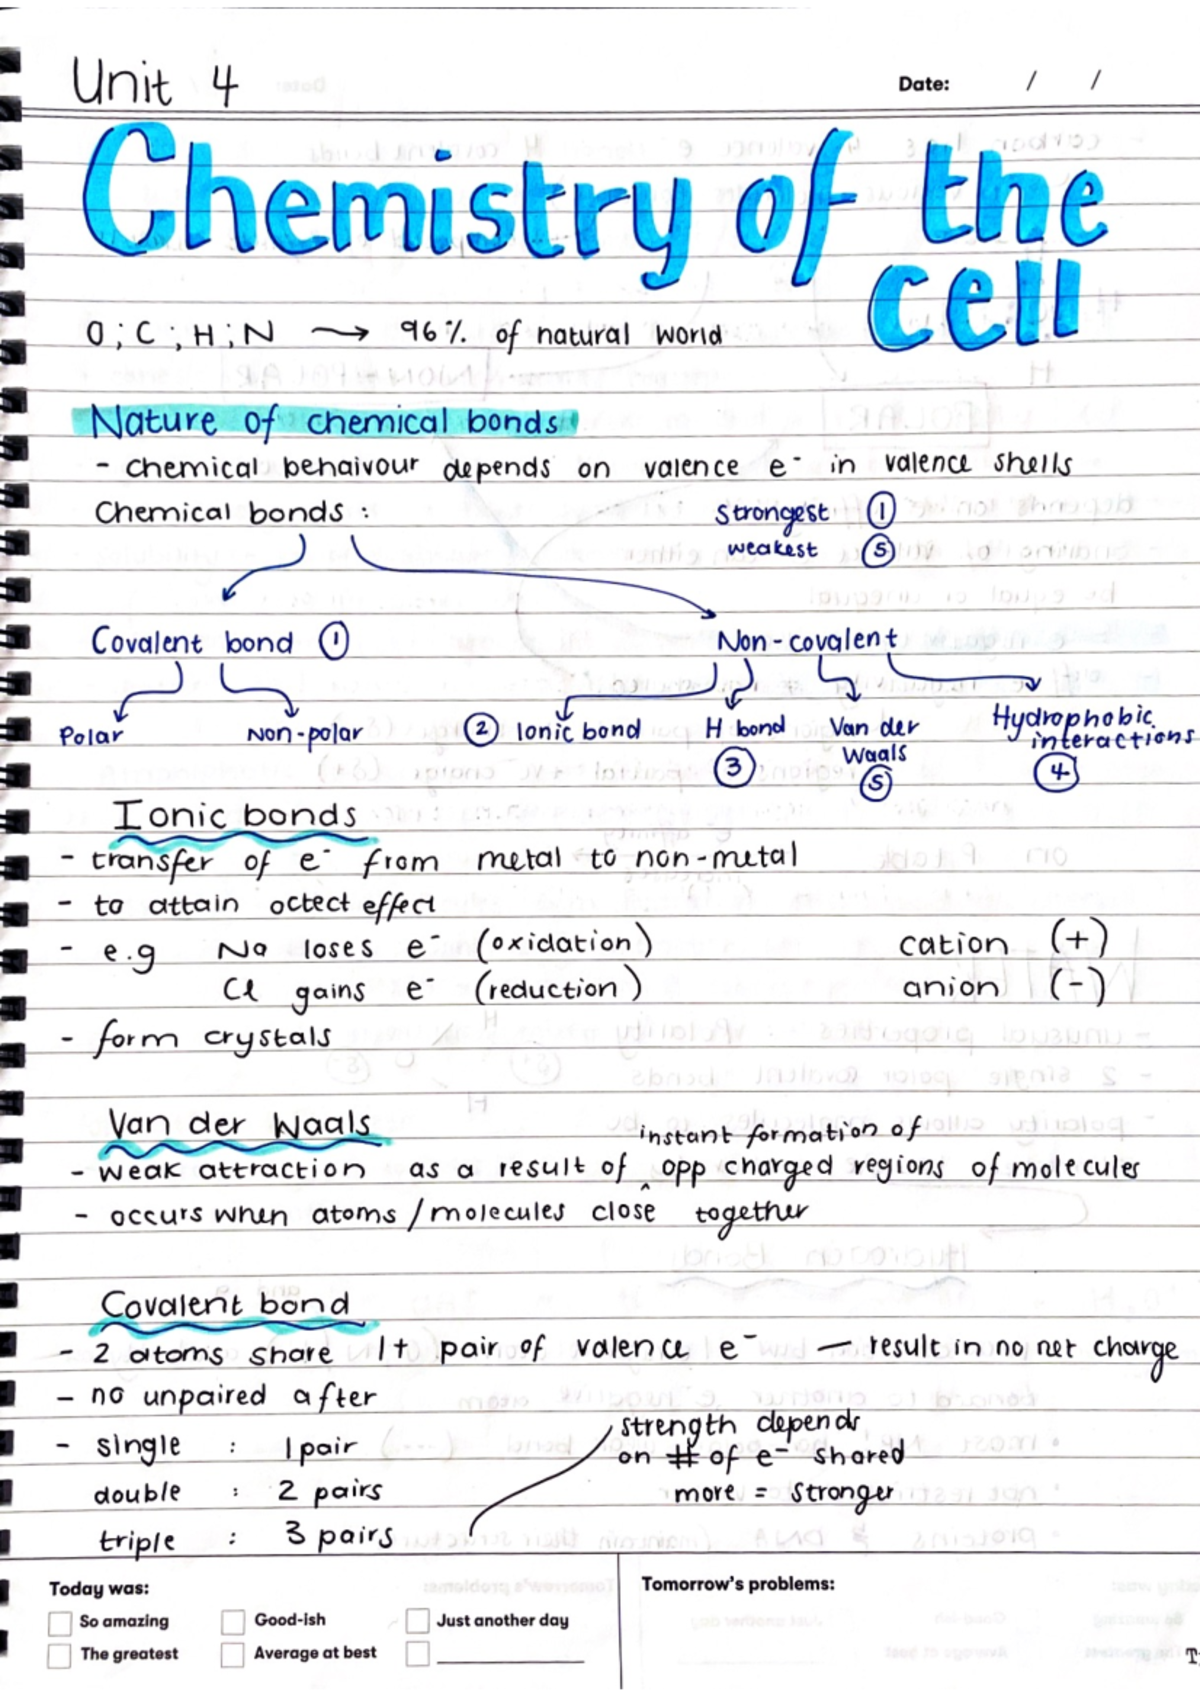 Unit 4
Date: / /
Chemistry of the
cell
O ; C ; H ; N → 96% of natural world
Nature of chemical bonds
- chemical behaivour depends on valence e⁻ in valence shells
Chemical bonds :
Strongest ①
weakest ⑤
Covalent bond ①
Non-covalent
Polar
Non-polar
② Ionic bond
H bond
③
Van der
Waals
⑤
Hydrophobic
interactions
④
Ionic bonds
- transfer of e⁻ from metal to non-metal
- to attain octect effect
- e.g Na loses e⁻ (oxidation) cation (+)
Cl gains e⁻ (reduction) anion (-)
- form crystals
Van der Waals
instant formation of
- weak attraction as a result of ‸ opp charged regions of molecules
- occurs when atoms / molecules close together
Covalent bond
- 2 atoms share 1+ pair of valence e⁻ — result in no net charge
- no unpaired after
- single : 1 pair
double : 2 pairs
triple : 3 pairs
strength depends
on # of e⁻ shared
more = stronger
Today was:
So amazing
Good-ish
Just another day
The greatest
Average at best
Tomorrow's problems: